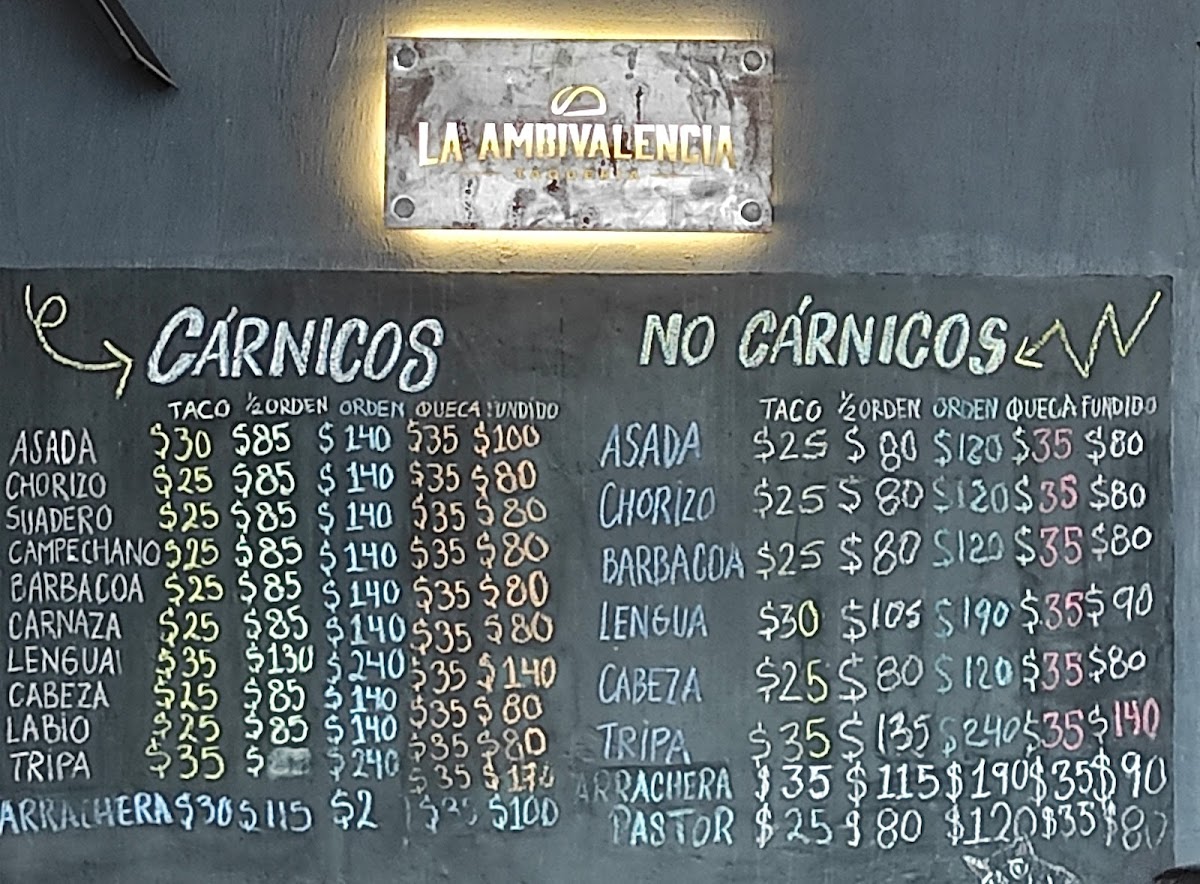 LA AMBIVALENCIA
TAQUERÍA
CÁRNICOS
TACO ½ ORDEN ORDEN QUECA FUNDIDO
ASADA $30 $85 $140 $35 $100
CHORIZO $25 $85 $140 $35 $80
SUADERO $25 $85 $140 $35 $80
CAMPECHANO $25 $85 $140 $35 $80
BARBACOA $25 $85 $140 $35 $80
CARNAZA $25 $85 $140 $35 $80
LENGUA $35 $130 $240 $35 $140
CABEZA $25 $85 $140 $35 $80
LABIO $25 $85 $140 $35 $80
TRIPA $35 $ $240 $35
ARRACHERA $30 $115 $2 $100
NO CÁRNICOS
TACO ½ ORDEN ORDEN QUECA FUNDIDO
ASADA $25 $80 $120 $35 $80
CHORIZO $25 $80 $120 $35 $80
BARBACOA $25 $80 $120 $35 $80
LENGUA $30 $105 $190 $35 $90
CABEZA $25 $80 $120 $35 $80
TRIPA $35 $135 $240 $35 $140
ARRACHERA $35 $115 $190 $35 $90
PASTOR $25 $80 $120 $35 $80